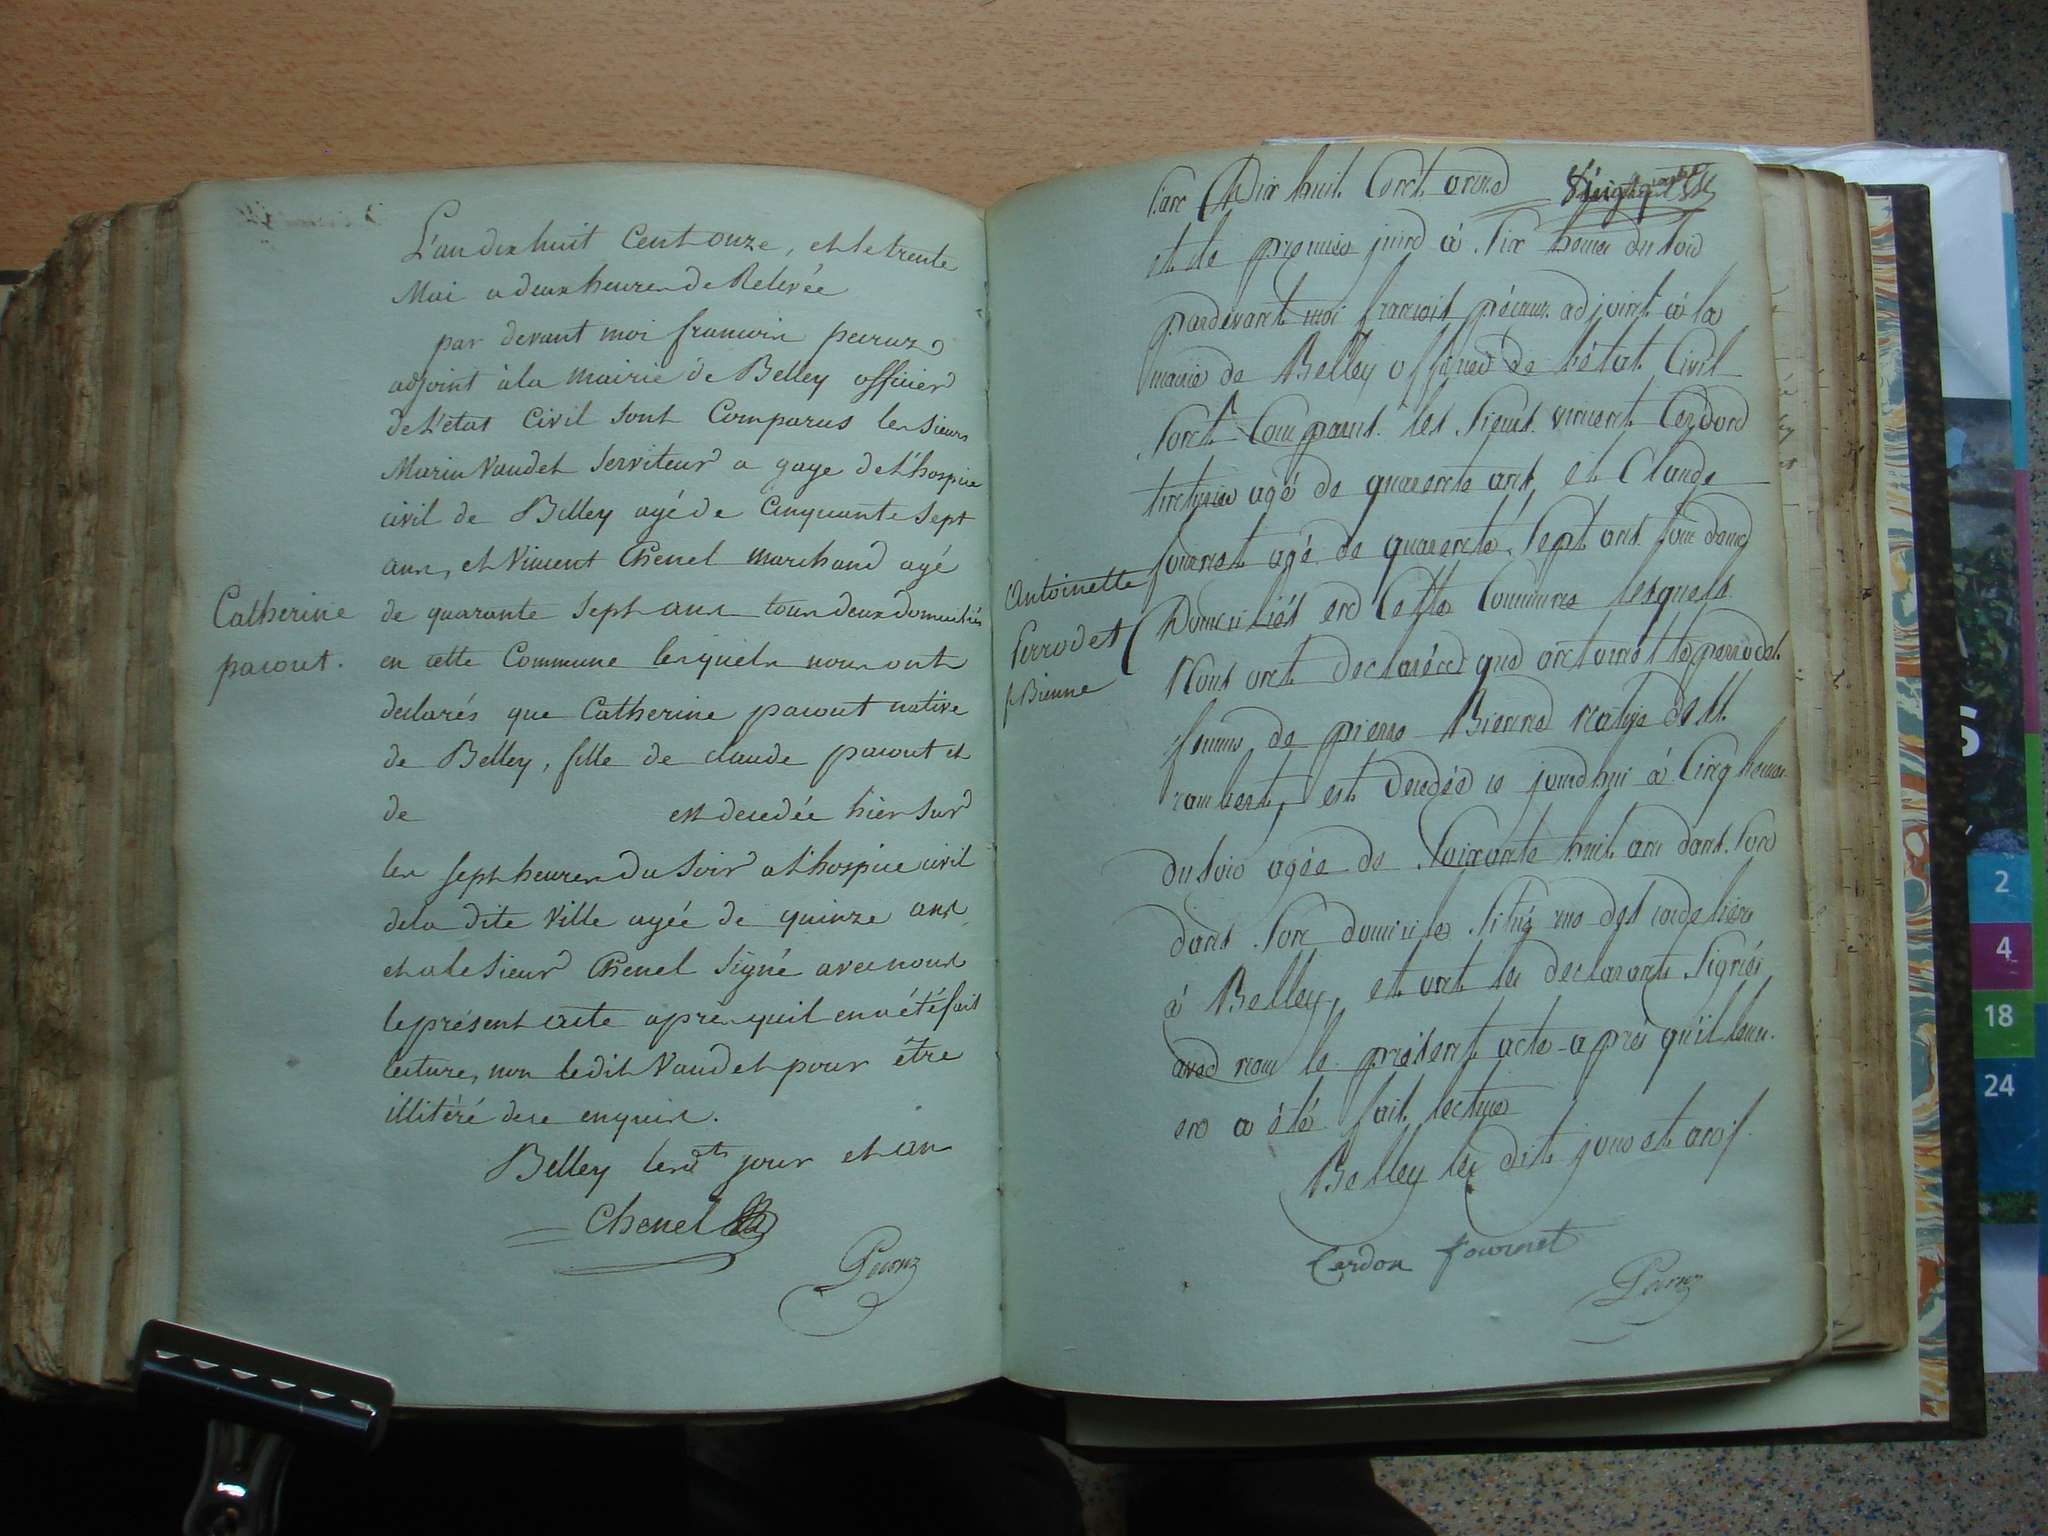 L'an dix huit Cent onze, et le trente
Mai a deux heures de Relevée
par devant moi francois pecruz
adjoint à la mairie de Belley officier
de L'etat Civil sont Comparus les sieurs
Marin Vaudet Serviteur a gage de L'hospice
civil de Belley agé de Cinquante Sept
ans, et Vincent Chenel marchand agé
de quarante sept ans tous deux domiciliés
en cette Commune lesquels nous ont
declarés que Catherine pacout native
de Belley, fille de claude pacout et
de est decedée hier sur
les sept heures du Soir a l'hospice civil
de la dite Ville agée de quinze ans
et a le Sieur Chenel Signé avec nous
le présent acte après quil en a été fait
lecture, non ledit Vaudet pour être
illitéré de ce enquis.
Belley les dts jour et an
Chenel
Catherine
pacout.
L'an Dix huit Cent onze
et le premier juin à Six heures du soir
pardevant moi francois pécruz adjoint à la
mairie de Belley officier de l'état Civil
Sont Comparus les Sieurs vincent Cardon
teinturier agé de quarente ans et Claude
fournet agé de quarente Sept ans tous deux
Domiciliés en Cette Commune lesquels
Nous ont declarée que antoinette perrodet
femme de pierre Bienne native de St.
rambert, est decedée ce jourdhui à Cinq heures
du soir agée de Soixante huit ans dans Son
dans Son domicile Situé rue des cordeliers
à Belley, et ont les declarants Signés
avec nous le présent acte après qu'il leur
en a été fait lecture
Belley les dits jour et an
Cardon fournet
Antoinette
Perrodet
f. Bienne
S
2
4
18
24